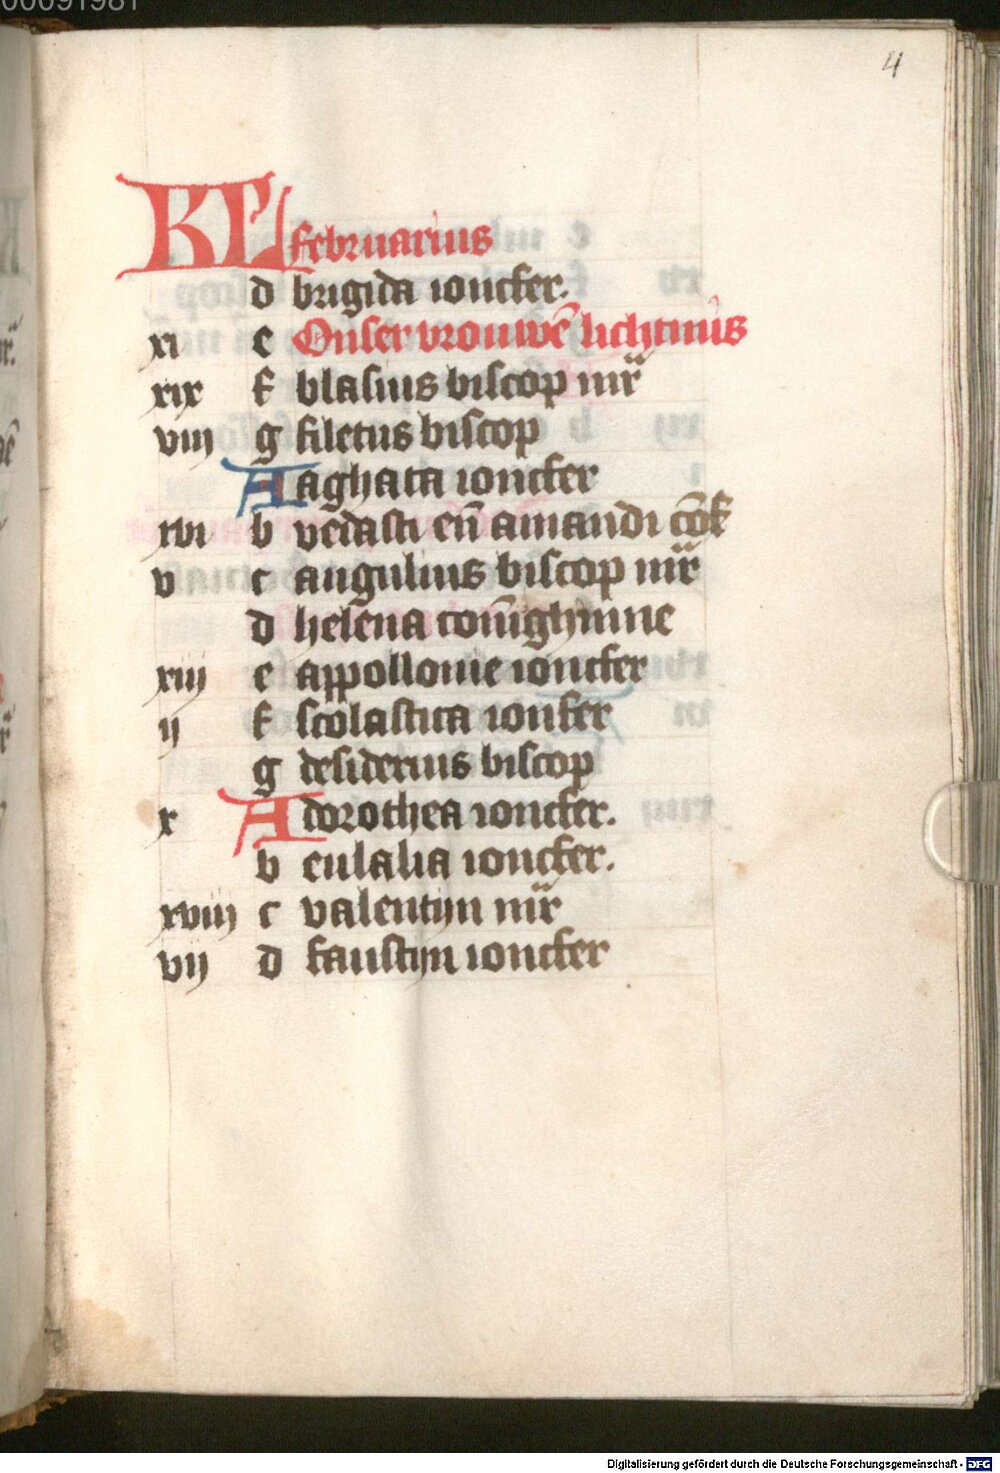 00091981
4
KL februarius
d brigida ioncfer.
xi e Onser vrouwē lichtmis
xix f blasius biscop mr̄
viii g filetus biscop
A aghata ioncfer
xvi b vedasti en̄ amandi cōf
v c angulius biscop mr̄
d helena coniṅghinne
xiij e appollonie ioncfer
ij f scolastica ionfer
g desiderius biscop
x A dorothea ioncfer.
b eulalia ioncfer.
xviij c valentijn mr̄
vij d faustijn ioncfer
Digitalisierung gefördert durch die Deutsche Forschungsgemeinschaft - DFG